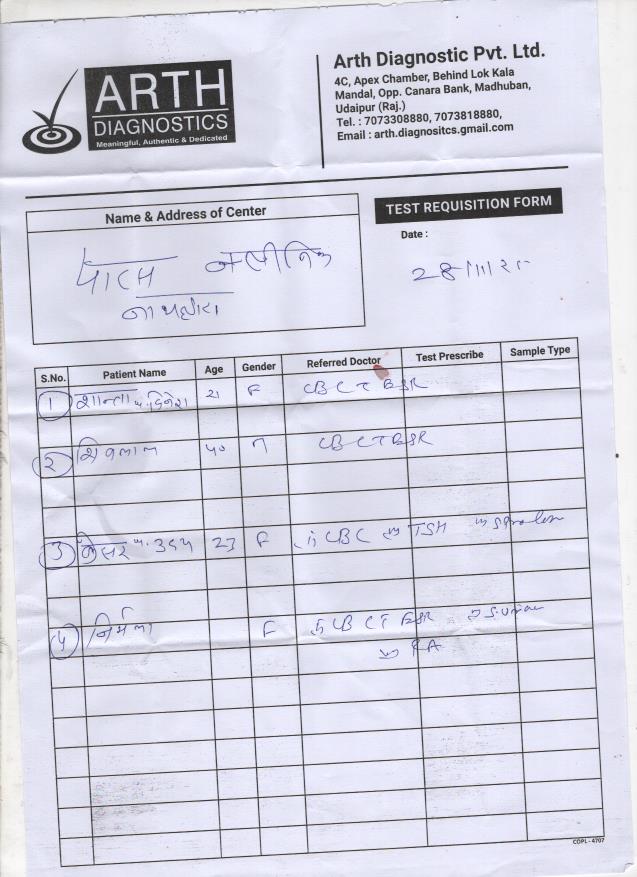 ARTH
DIAGNOSTICS
Meaningful, Authentic & Dedicated
Arth Diagnostic Pvt. Ltd.
4C, Apex Chamber, Behind Lok Kala
Mandal, Opp. Canara Bank, Madhuban,
Udaipur (Raj.)
Tel. : 7073308880, 7073818880,
Email : arth.diagnositcs.gmail.com
Name & Address of Center
TEST REQUISITION FORM
Date :
क्लीनिक
28/11/2
S.No. Patient Name Age Gender Referred Doctor Test Prescribe Sample Type
1 शान्ता 21 F CBC T ESR
2 शिवलाल 40 M CBC T ESR
3 केसर 23 F CBC TSH
4 निर्मला F CBC T ESR
RA
COPL - 4707